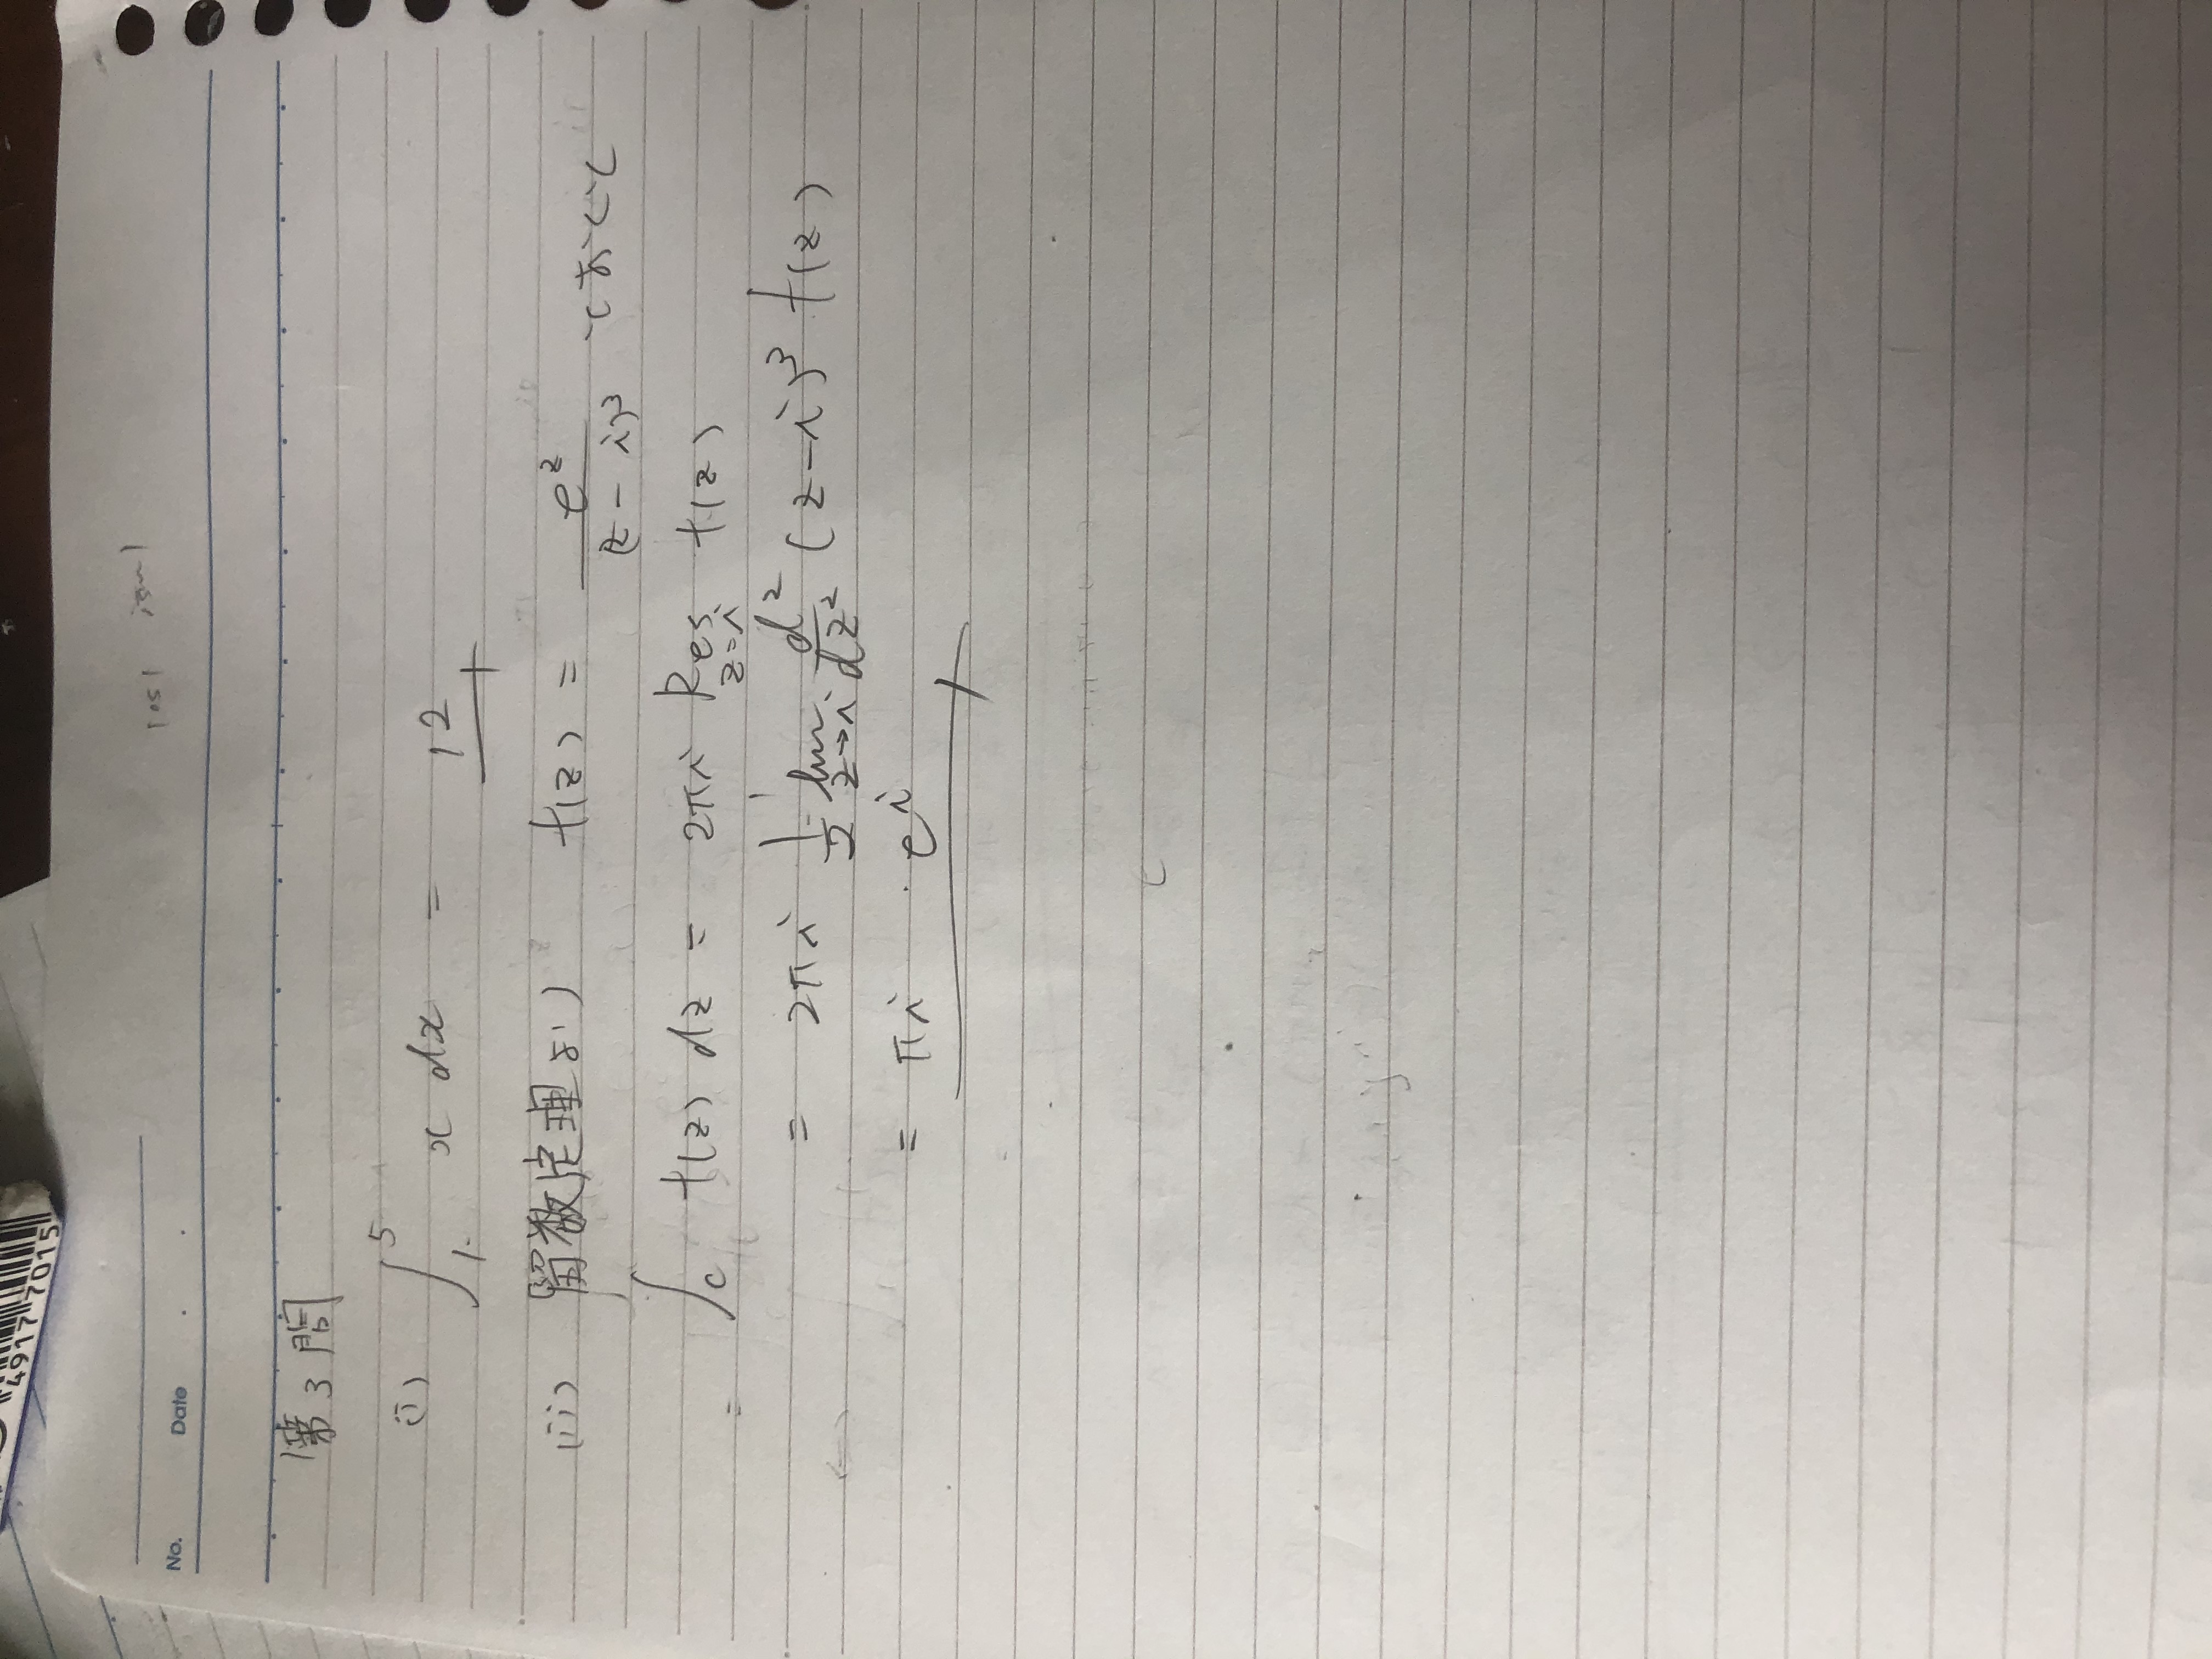 4917 7015
No. Date . .
第3問
(i) ∫₁⁵ x dx = 12
(ii) 留数定理より f(z) = e^z / (z - i)³ とおくと
= ∫_C f(z) dz = 2πi Res_{z=i} f(z)
= 2πi 1/2 lim_{z→i} d²/dz² (z-i)³ f(z)
= πi · e^i